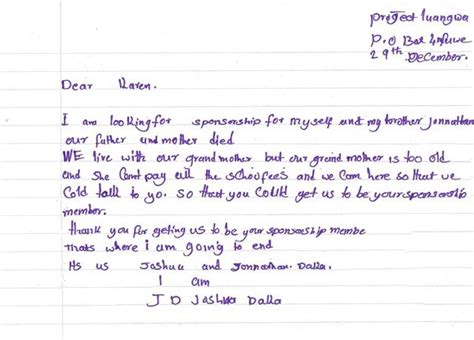 project luangwa
P.O Box Mfuwe
29th December.
Dear Karen.
I am looking for sponsorship for myself and my brother Jonnathan
our father and mother died
WE live with our grandmother but our greind mother is too old
and she Cant pay all the schoofees and we Cam here so that we
Cold talk to yo. so that you Could get us to be your sponsorship
member.
thank you for geting us to be your sponsorship membe
thats where i am going to end
Its us Joshua and Jonnathan. Dalla.
I am
J D Jashua Dalla